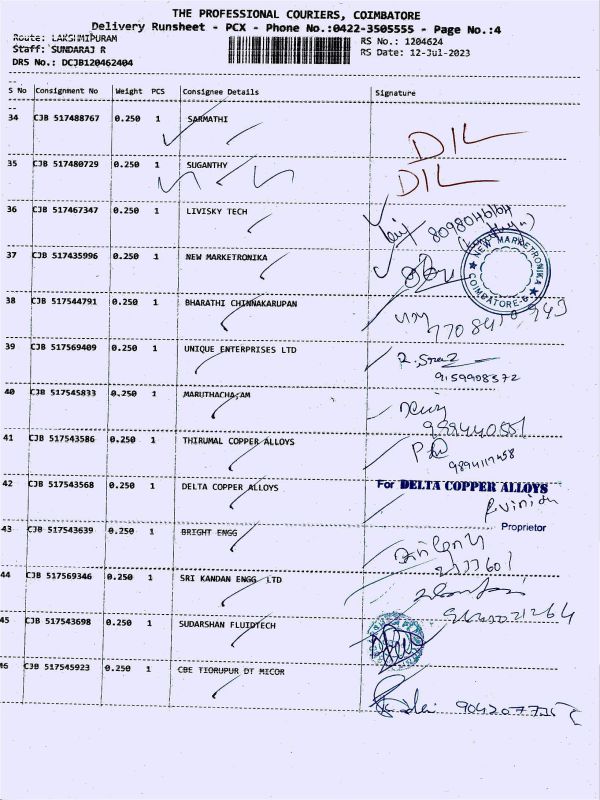 THE PROFESSIONAL COURIERS, COIMBATORE
Delivery Runsheet - PCX - Phone No.:0422-3505555 - Page No.:4
Route: LAKSHMIPURAM
Staff: SUNDARAJ R
DRS No.: DCJB120462404
RS No.: 1204624
RS Date: 12-Jul-2023
S No Consignment No Weight PCS Consignee Details Signature
34 CJB 517488767 0.250 1 SARMATHI DIL
35 CJB 517480729 0.250 1 SUGANTHY DIL
36 CJB 517467347 0.250 1 LIVISKY TECH
37 CJB 517435996 0.250 1 NEW MARKETRONIKA
NEW MARKETRONIKA COIMBATORE-6
38 CJB 517544791 0.250 1 BHARATHI CHINNAKARUPAN
39 CJB 517569409 0.250 1 UNIQUE ENTERPRISES LTD
9159908372
40 CJB 517545833 0.250 1
41 CJB 517543586 0.250 1 THIRUMAL COPPER ALLOYS
9894117458
42 CJB 517543568 0.250 1 DELTA COPPER ALLOYS For DELTA COPPER ALLOYS
Proprietor
43 CJB 517543639 0.250 1 BRIGHT ENGG
44 CJB 517569346 0.250 1 SRI KANDAN ENGG LTD
45 CJB 517543698 0.250 1 SUDARSHAN FLUIDTECH
46 CJB 517545923 0.250 1 CBE TIORUPUR DT MICOR